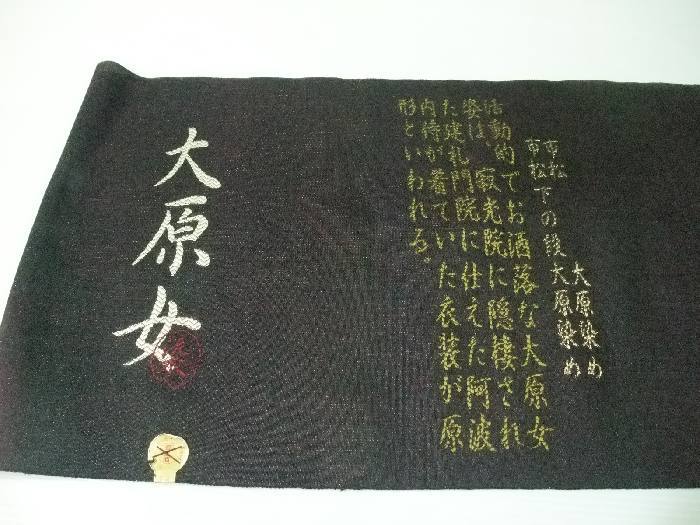 市松 大原染め
市松下の段 大原染め
活動的でお洒落な大原女
姿は、寂光院に隠棲され
た建礼門院に仕えた阿波
内侍が着ていた衣装が原
形といわれる。
大原女